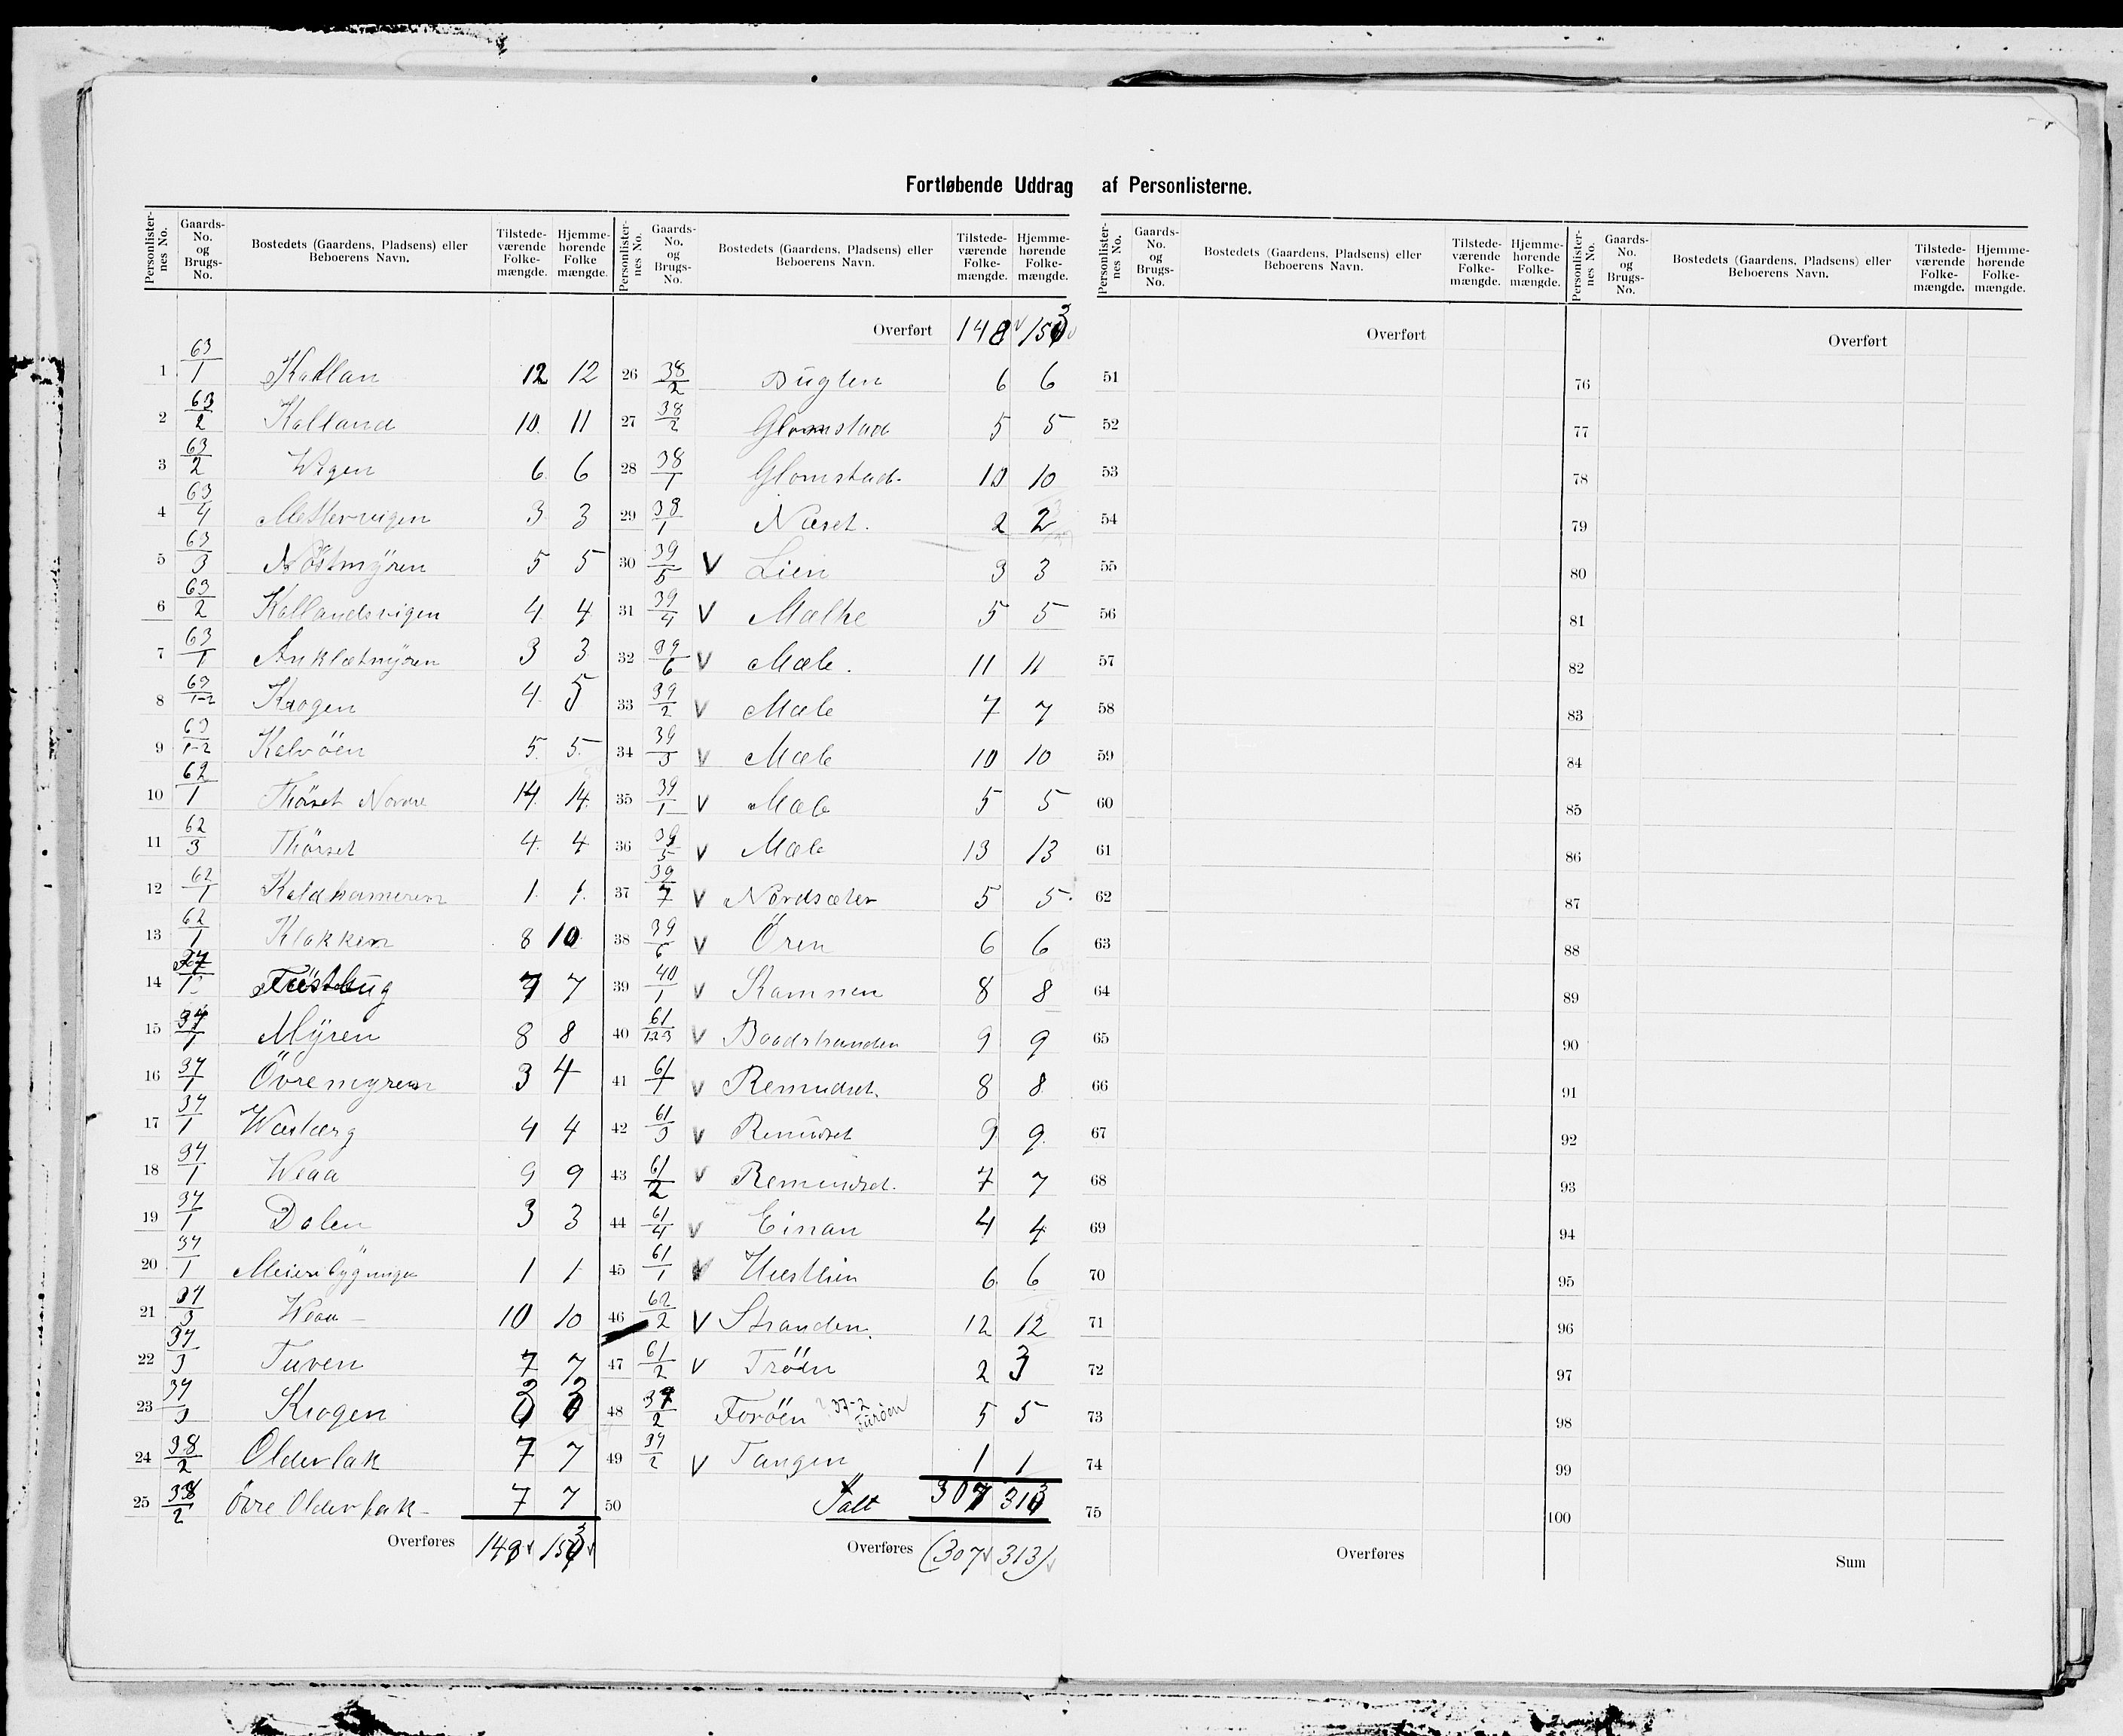 Fortløbende Uddrag af Personlisterne.
Personlisternes No. Gaards-No. og Brugs-No. Bostedets (Gaardens, Pladsens) eller Beboerens Navn. Tilstedeværende Folkemængde. Hjemmehørende Folke mængde.
Personlisternes No. Gaards-No. og Brugs-No. Bostedets (Gaardens, Pladsens) eller Beboerens Navn. Tilstedeværende Folkemængde. Hjemmehørende Folkemængde.
1 63/1 Kallan 12 12
2 63/2 Kalland 10 11
3 63/2 Wigen 6 6
4 63/4 Mellemvigen 3 3
5 63/3 Nöstmÿren 5 5
6 63/2 Kallandsvigen 4 4
7 63/1 Anklætmÿren 3 3
8 63/1-2 Krogen 4 5
9 63/1-2 Kalvöen 5 5
10 62/1 Thörset Nordre 14 14
11 62/3 Thörset 4 4
12 62/1 Kaldhammeren 1 1
13 62/1 Klokken 8 10
14 37/1 7 7
15 37/1 Mÿren 8 8
16 37/1 Övremyren 3 4
17 37/1 4 4
18 37/1 Weaa 9 9
19 37/1 Dalen 3 3
20 37/1 Meieribÿgningen 1 1
21 37/3 Weaa 10 10
22 37/3 Tuven 7 7
23 37/3 Krogen
24 38/2 Olderbak 7 7
25 38/2 Övre Olderbak 7 7
Overføres 148 153
Overført 148 153
26 38/2 Buglen 6 6
27 38/2 Glomstad 5 5
28 38/1 Glomstad 10 10
29 38/1 Næset. 2 2
30 39/5 V Lien 3 3
31 39/4 V Mælhe 5 5
32 39/6 V Mæle. 11 11
33 39/2 V Mæle 7 7
34 39/3 V Mæle 10 10
35 39/1 V Mæle 5 5
36 39/5 V Mæle 13 13
37 39/7 V Nordsæter 5 5
38 39/6 V Ören 6 6
39 40/1 V Kamnen 8 8
40 61/1-2-3 V Baadstranden 9 9
41 61/1 V Remudset. 8 8
42 61/3 V Remudset 9 9
43 61/2 V Remundset. 7 7
44 61/4 V Einan 4 4
45 61/1 V Hestlien 6 6
46 62/2 V Stranden. 12 12
47 61/2 V Tröen 2 3
48 37/2 Foröen 37-2 Furöen 5 5
49 37/2 V Tangen 1 1
50 Ialt 307 313
Overføres (307 313)
Personlisternes No. Gaards-No. og Brugs-No. Bostedets (Gaardens, Pladsens) eller Beboerens Navn. Tilstedeværende Folkemængde. Hjemmehørende Folkemængde.
Overført
51
52
53
54
55
56
57
58
59
60
61
62
63
64
65
66
67
68
69
70
71
72
73
74
75
Overføres
Personlisternes No. Gaards-No. og Brugs-No. Bostedets (Gaardens, Pladsens) eller Beboerens Navn. Tilstedeværende Folkemængde. Hjemmehørende Folkemængde.
Overført
76
77
78
79
80
81
82
83
84
85
86
87
88
89
90
91
92
93
94
95
96
97
98
99
100
Sum